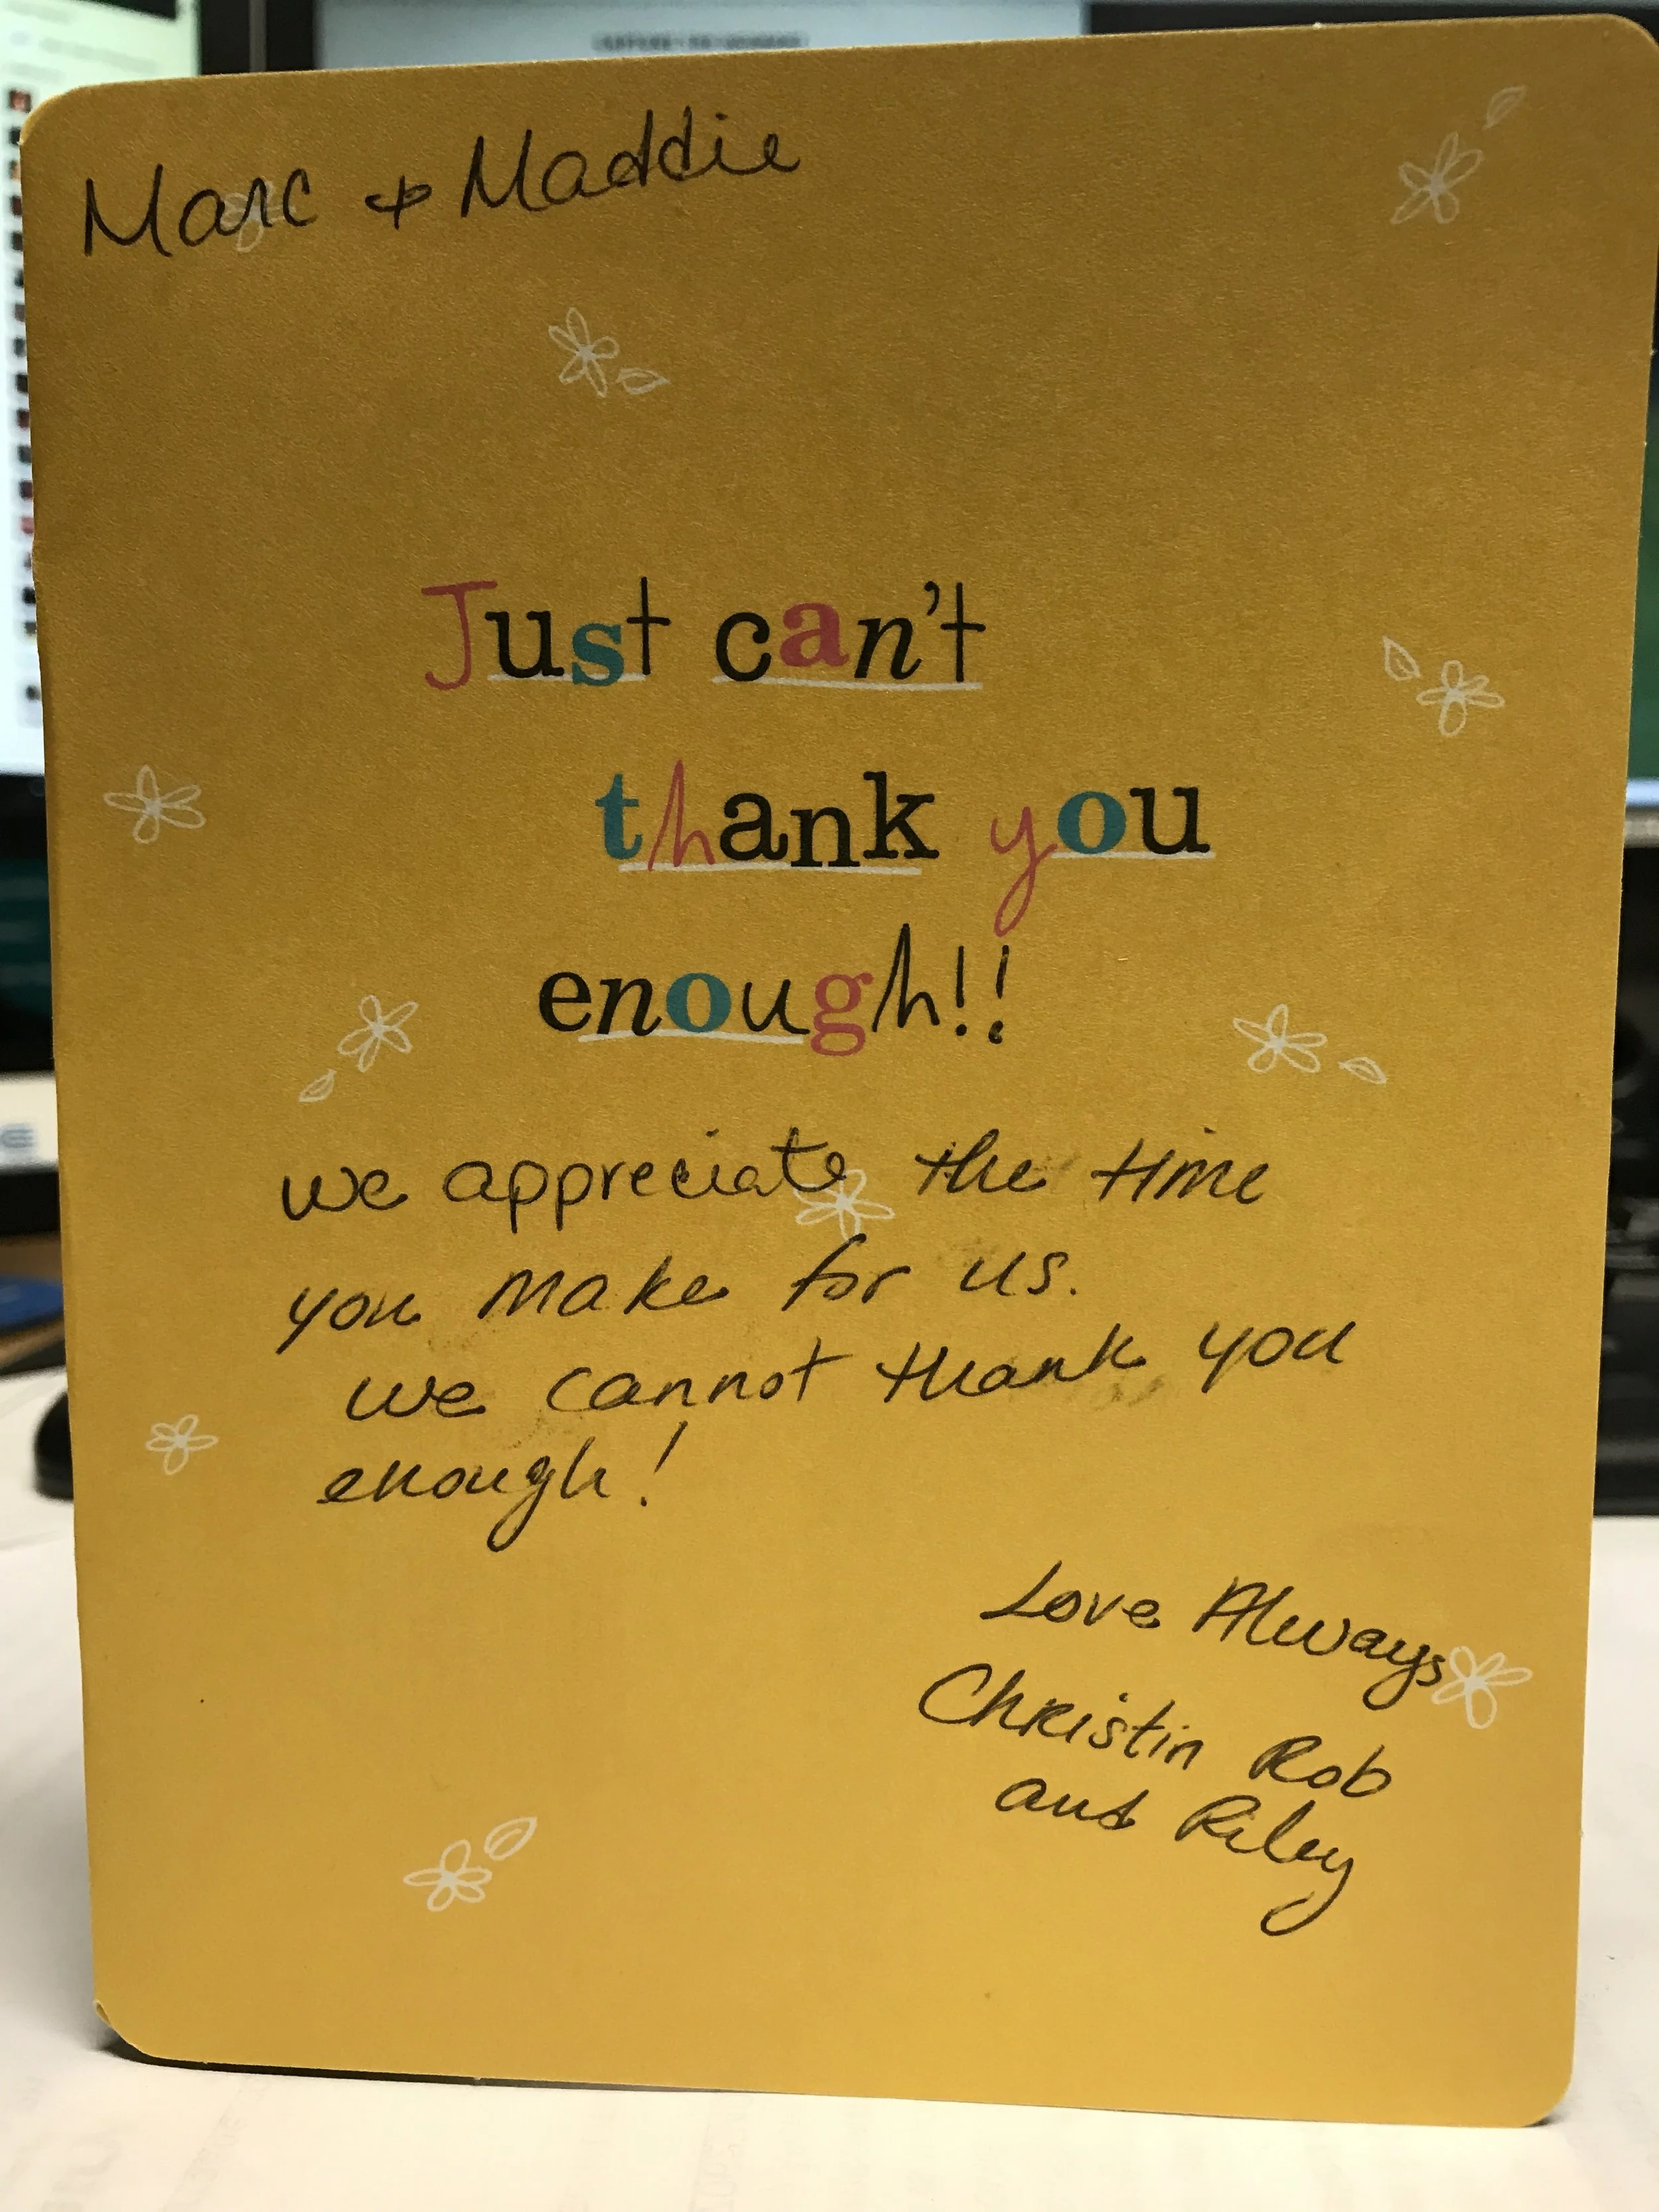 Marc + Maddie
Just can't
thank you
enough!!
we appreciate the time
you make for us.
we cannot thank you
enough!
Love Always
Christin Rob
and Riley